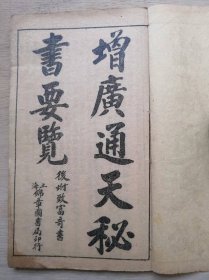 增廣通天秘
書要覽
後附致富奇書
上海錦章圖書局印行